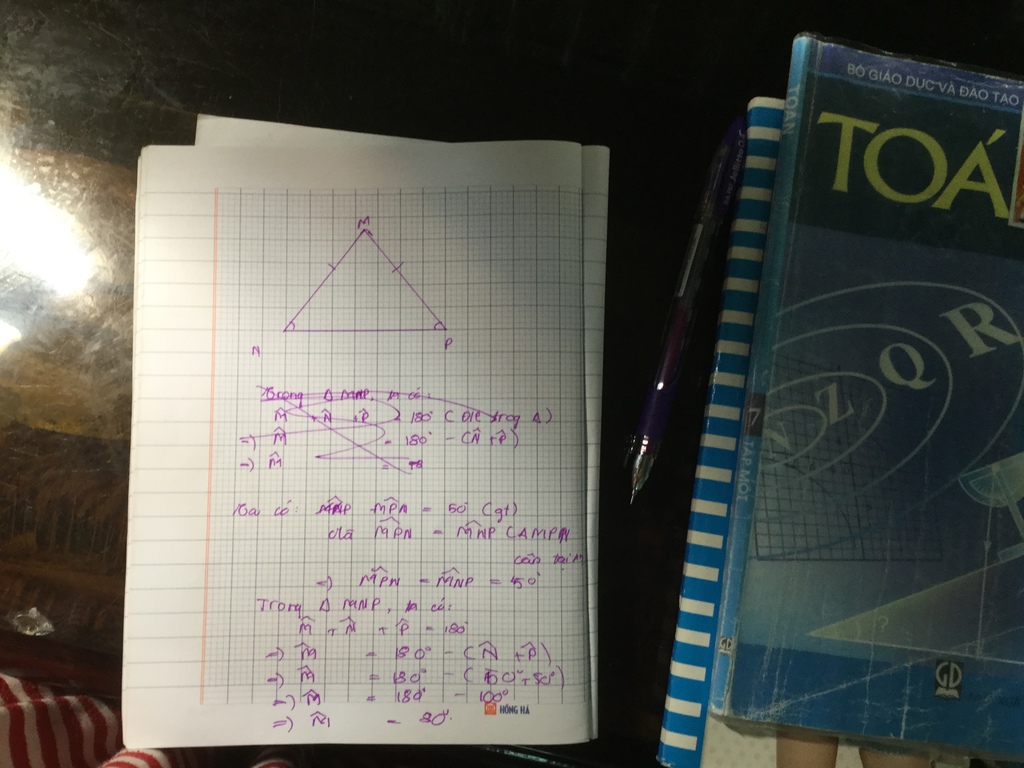 M
N
P
Trong Δ MNP, ta có:
M̂ + N̂ + P̂ = 180° (Đlí trog Δ)
=) M̂ = 180° - (N̂ + P̂)
=) M̂ =
Ta có: MPN = 50° (gt)
mà MPN = MNP (ΔMPN
cân tại M
=) MPN = MNP = 50°
Trong Δ MNP, ta có:
M̂ + N̂ + P̂ = 180°
=) M̂ = 180° - (N̂ + P̂)
=) M̂ = 180° - (50° + 50°)
=) M̂ = 180° - 100°
=) M̂ = 80°.
HỒNG HÀ
BỘ GIÁO DỤC VÀ ĐÀO TẠO
TOÁ
N Z Q R
TOÁN 7 TẬP MỘT
?
GD